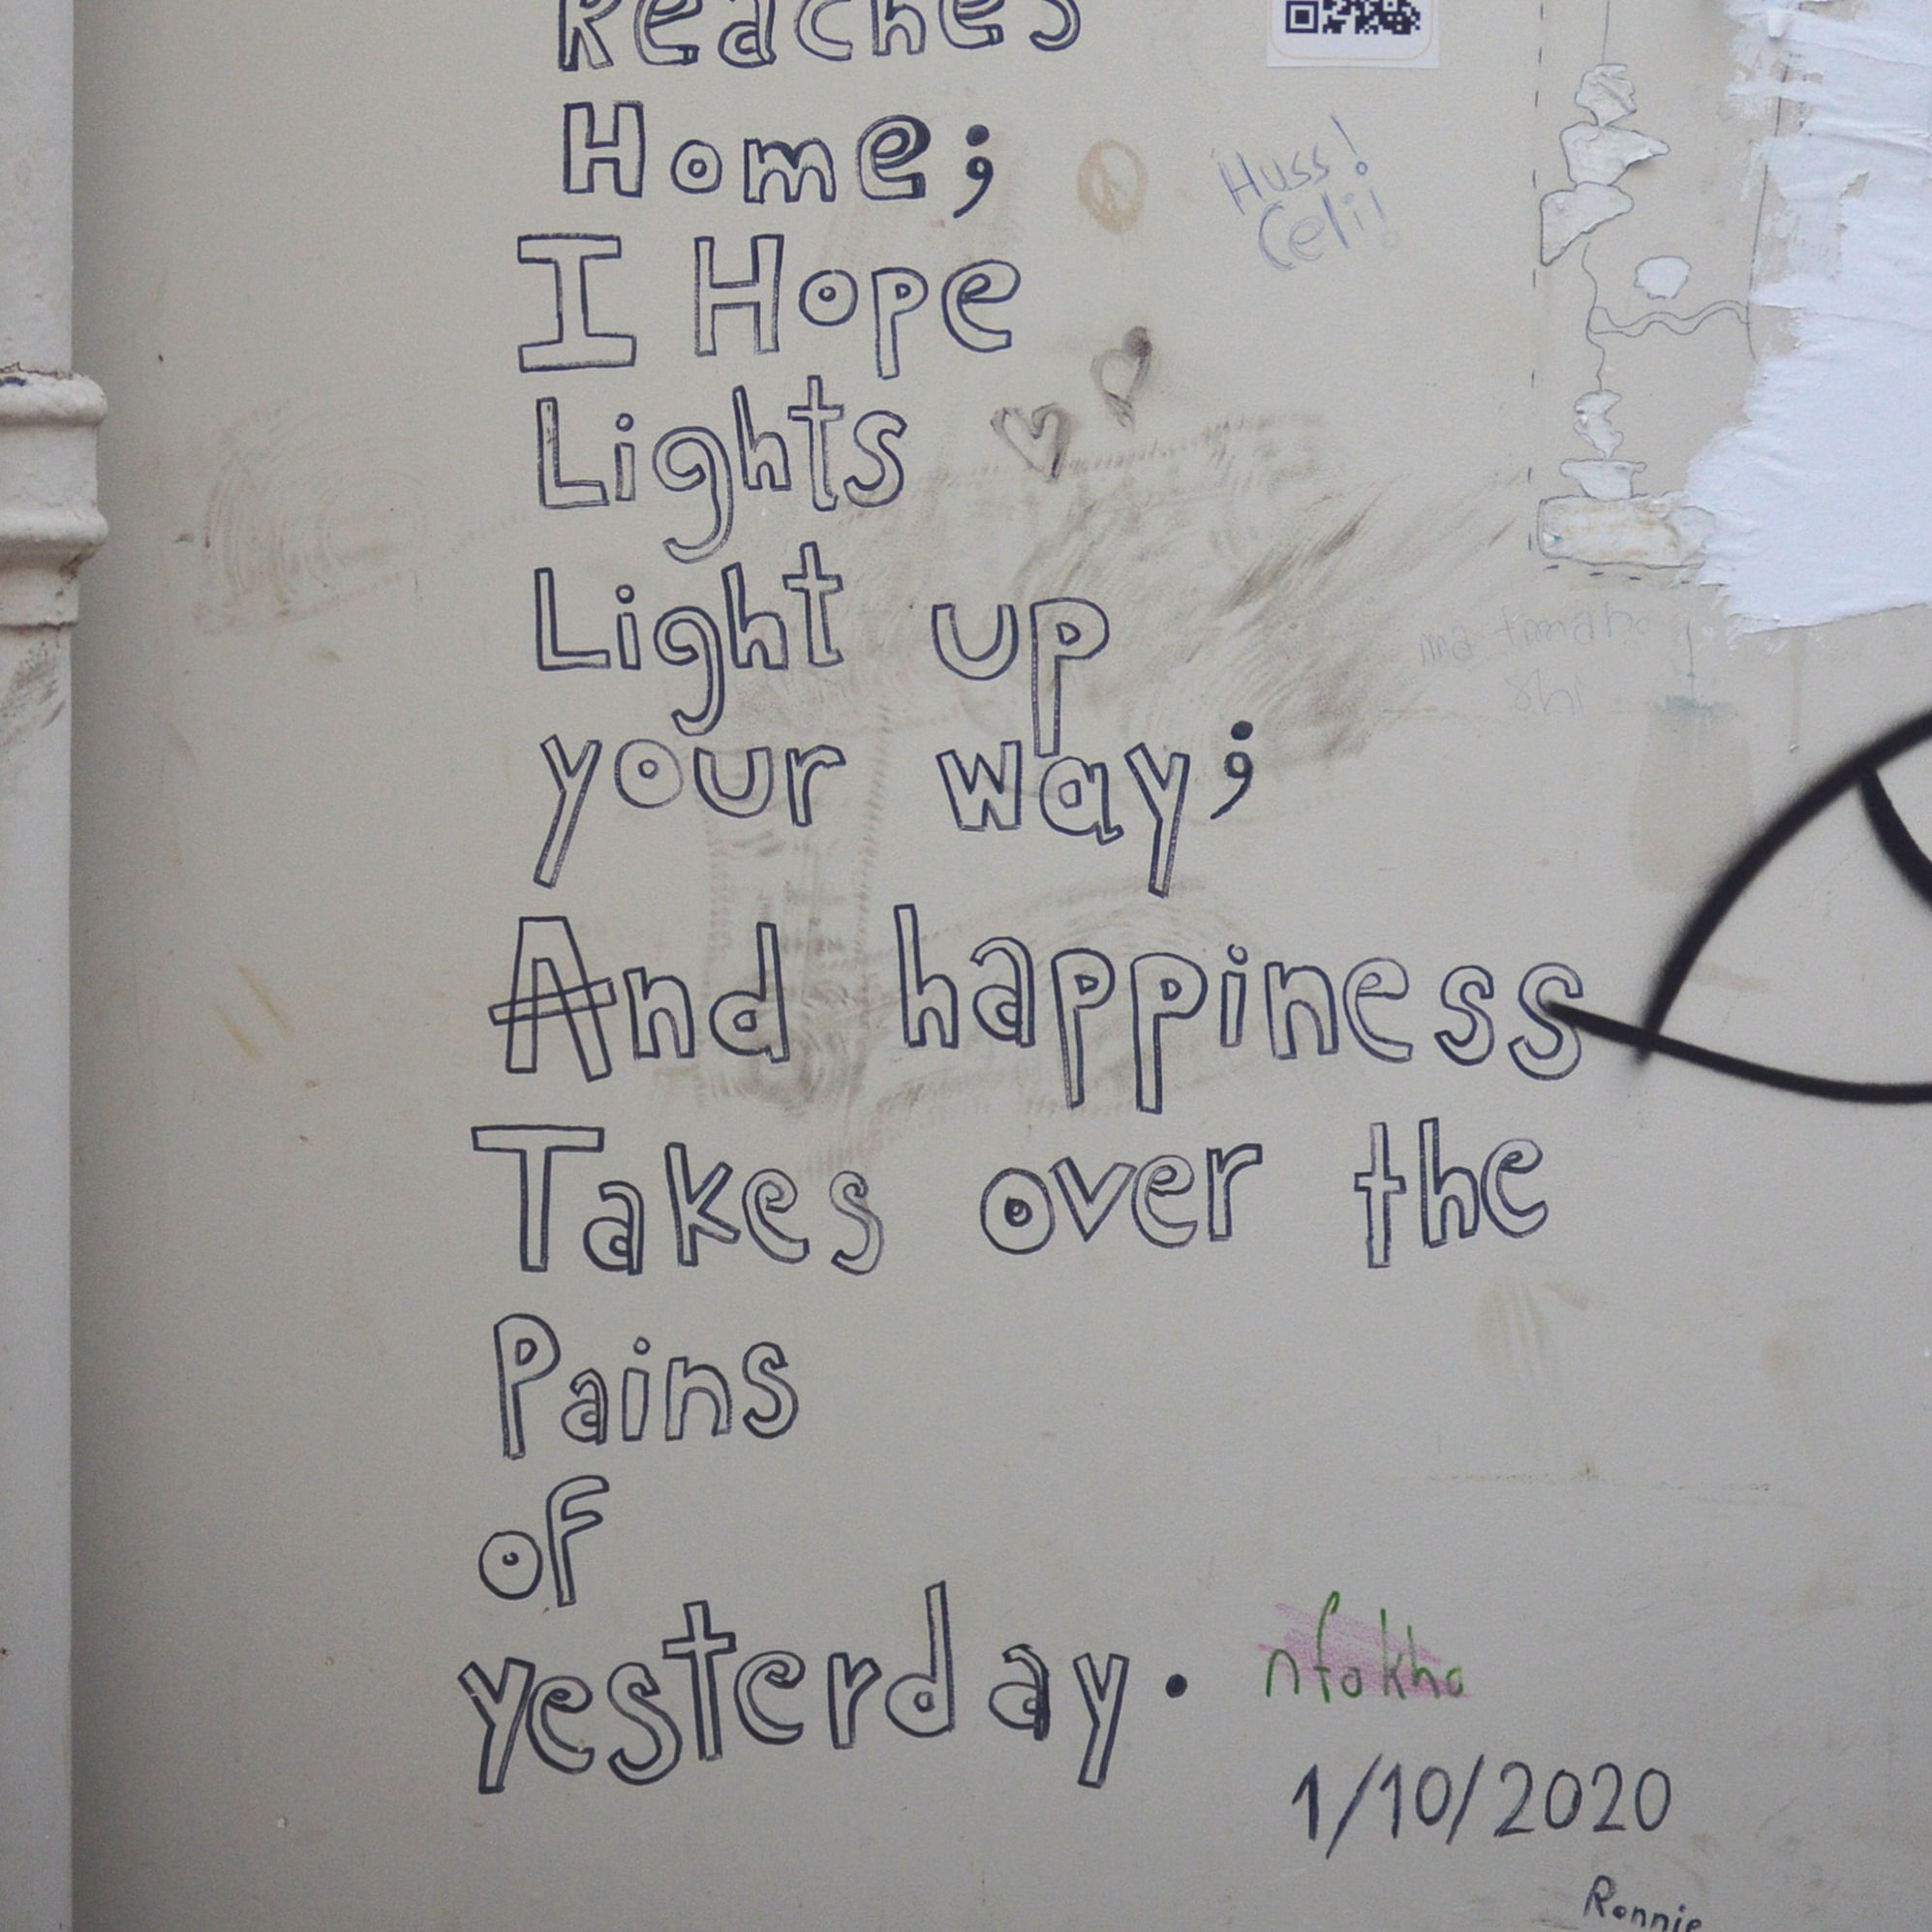 Reaches
Home;
I Hope
Lights
Light up
your way;
And happiness
Takes over the
Pains
of
yesterday.
Huss!
Celi!
nfokha
1/10/2020
Ronnie